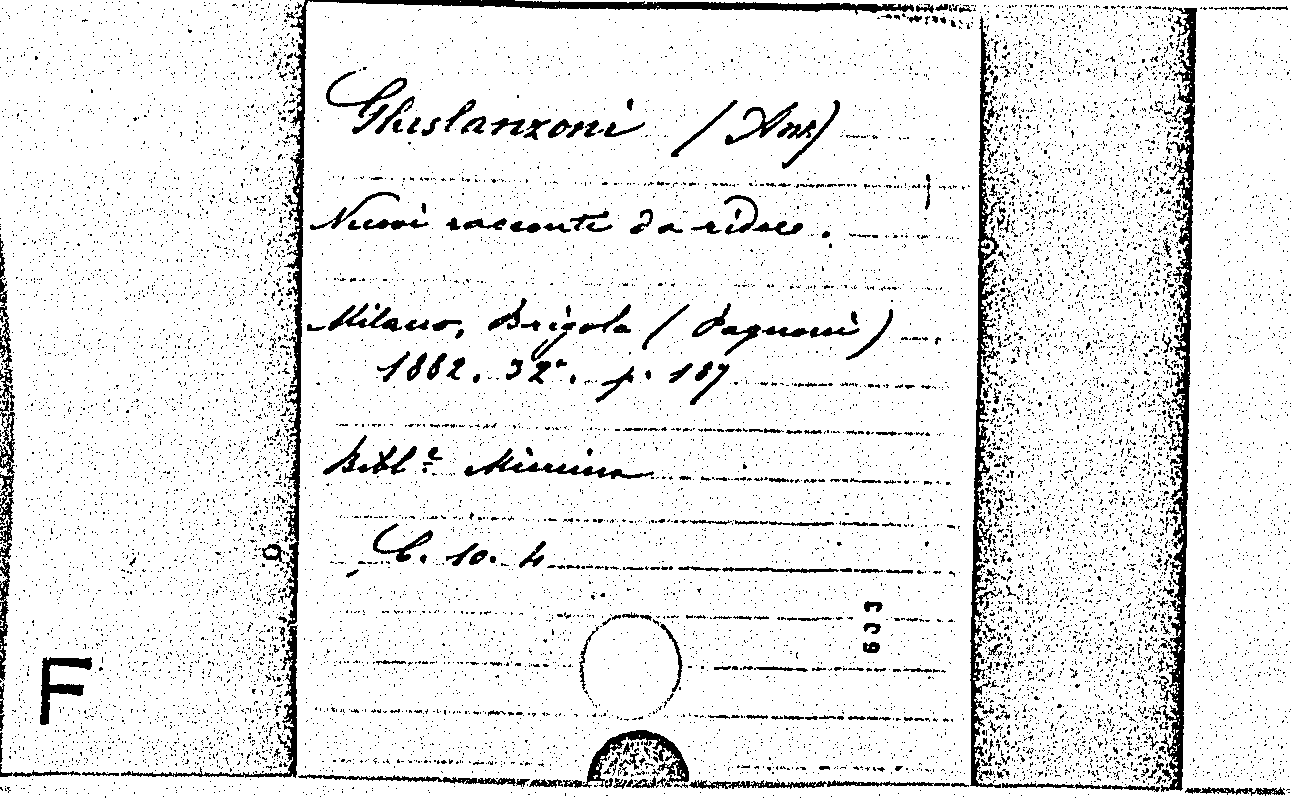 Ghislanzoni (Ant)
Nuovi racconti da ridere.
Milano, Brigola (Pagnoni)
1882. 32°. p. 187
Bibl.ᵃ Minima
C. 10. 4
633
F